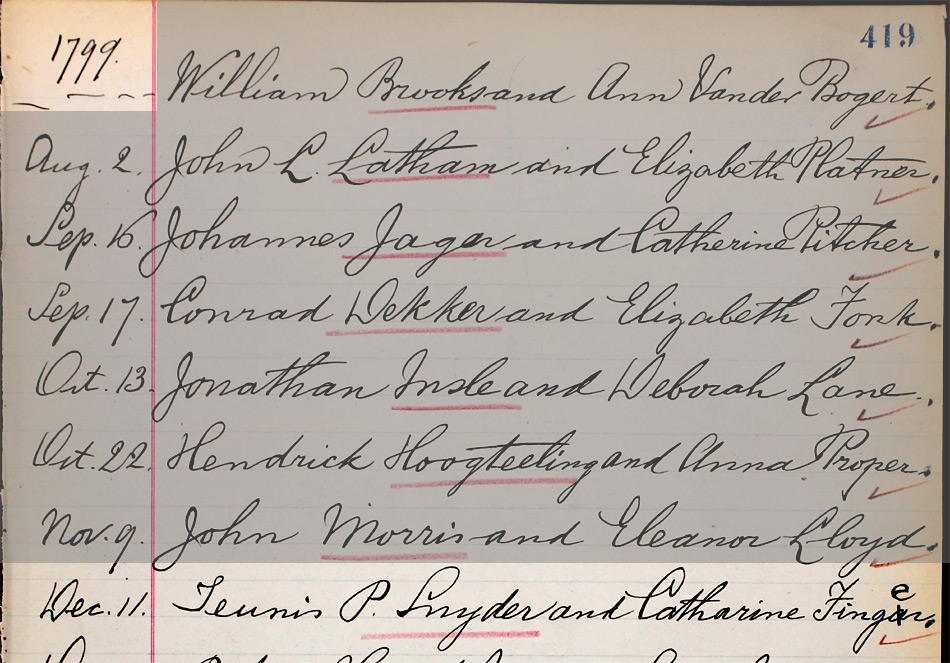 419
1799.
— — - - William Brooks and Ann Vander Bogert.
Aug. 2. John L. Latham and Elizabeth Platner.
Sep. 16. Johannes Jager and Catherine Pitcher.
Sep. 17. Conrad Dekker and Elizabeth Fonk.
Oct. 13. Jonathan Insle and Deborah Lane.
Oct. 22. Hendrick Hoogteeling and Anna Proper.
Nov. 9. John Morris and Eleanor Lloyd.
Dec. 11. Teunis P. Snyder and Catharine Finger.